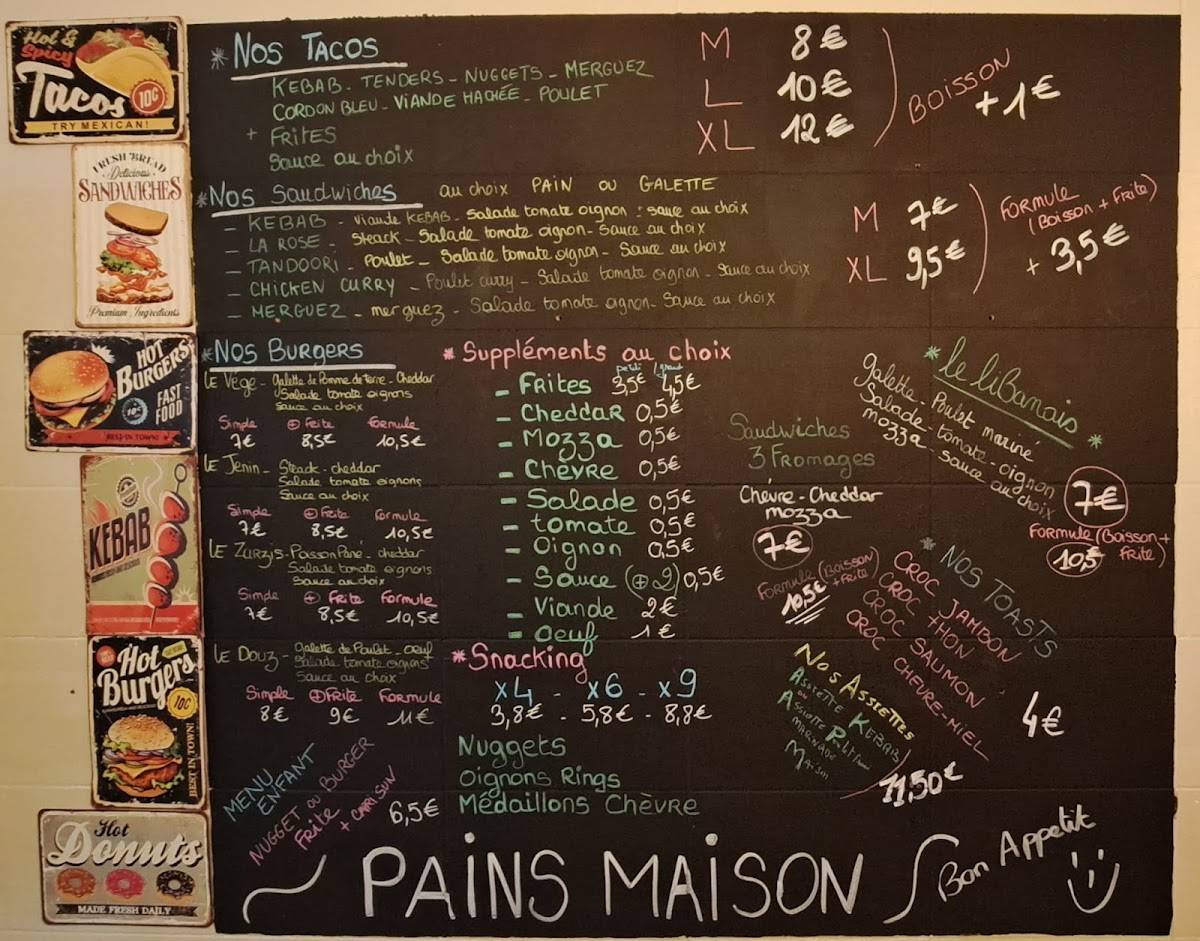 Hot &
Spicy
Tacos
10¢
TRY MEXICAN!
FRESH BREAD
Delicious
SANDWICHES
Premium Ingredients
HOT
BURGERS
10¢
FAST
FOOD
BEST IN TOWN!
KEBAB
Hot
Burgers
10¢
BEST IN TOWN
Hot
Donuts
MADE FRESH DAILY
* NOS TACOS
KEBAB - TENDERS - NUGGETS - MERGUEZ
CORDON BLEU - VIANDE HACHÉE - POULET
+ FRITES
Sauce au choix
M 8€
L 10€
XL 12€
BOISSON
+ 1€
* NOS Sandwiches au choix PAIN OU GALETTE
- KEBAB - viande KEBAB - Salade tomate oignon - sauce au choix
- LA ROSE - Steack - Salade tomate oignon - Sauce au choix
- TANDOORI - Poulet - Salade tomate oignon - Sauce au choix
- CHICKEN CURRY - Poulet curry - Salade tomate oignon - Sauce au choix
- MERGUEZ - merguez - Salade tomate oignon - Sauce au choix
M 7€
XL 9,5€
FORMULE
(Boisson + Frite)
+ 3,5€
* NOS BURGERS
LE Végé - Galette de Pomme de terre - Cheddar
Salade tomate oignons
Sauce au choix
Simple ⊕ Frite Formule
7€ 8,5€ 10,5€
LE JENIN - Steack - cheddar
Salade tomate oignons
Sauce au choix
Simple ⊕ Frite Formule
7€ 8,5€ 10,5€
LE Zarzis - Poisson Pané - cheddar
Salade tomate oignons
Sauce au choix
Simple ⊕ Frite Formule
7€ 8,5€ 10,5€
LE DOUZ - Galette de Poulet - oeuf
Salade tomate oignons
Sauce au choix
Simple ⊕ Frite Formule
8€ 9€ 11€
MENU
ENFANT
NUGGET OU BURGER
FRITE
+ CAPRI SUN
6,5€
* Suppléments au choix
petit / grand
- Frites 3,5€ 4,5€
- Cheddar 0,5€
- Mozza 0,5€
- Chèvre 0,5€
- Salade 0,5€
- tomate 0,5€
- Oignon 0,5€
- Sauce (⊕ 2) 0,5€
- Viande 2€
- Oeuf 1€
* Snacking
x4 - x6 - x9
3,8€ - 5,8€ - 8,8€
Nuggets
Oignons Rings
Médaillons Chèvre
Sandwiches
3 Fromages
Chèvre - Cheddar
mozza
7€
FORMULE (BOISSON
+ FRITE)
10,5€
* le libanais *
galette - Poulet mariné
Salade - tomate - oignon
mozza - sauce au choix
7€
FORMULE (Boisson +
Frite)
10,5
* NOS TOASTS
CROC JAMBON
CROC THON
CROC SAUMON
CROC CHEVRE-MIEL
4€
NOS ASSIETTES
ASSIETTE KEBAB
ou
MARINADE
Maison
11,50€
PAINS MAISON
Bon Appetit